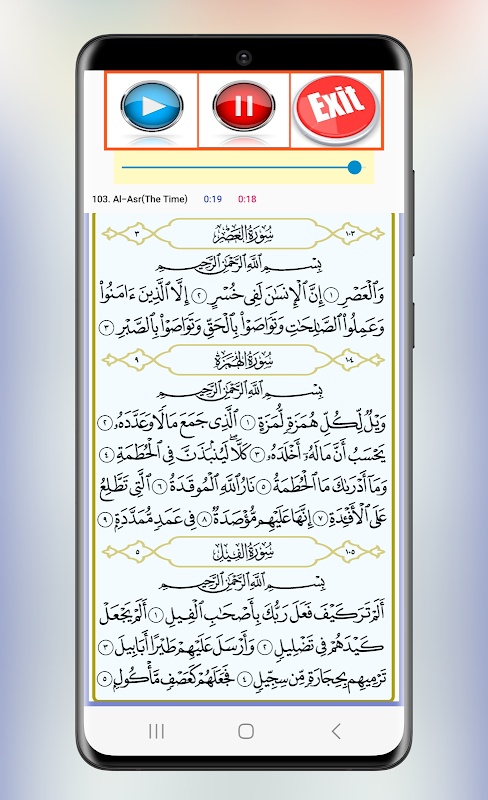 Exit
103. Al-Asr(The Time) 0:19 0:18
١٠٣ سُورَةُ العَصْرِ ٣
بِسْمِ اللَّهِ الرَّحْمَٰنِ الرَّحِيمِ
وَالْعَصْرِ ١ إِنَّ الْإِنسَانَ لَفِي خُسْرٍ ٢ إِلَّا الَّذِينَ ءَامَنُوا
وَعَمِلُوا الصَّالِحَاتِ وَتَوَاصَوْا بِالْحَقِّ وَتَوَاصَوْا بِالصَّبْرِ ٣
١٠٤ سُورَةُ الهُمَزَةِ ٩
بِسْمِ اللَّهِ الرَّحْمَٰنِ الرَّحِيمِ
وَيْلٌ لِّكُلِّ هُمَزَةٍ لُّمَزَةٍ ١ الَّذِي جَمَعَ مَالًا وَعَدَّدَهُ ٢
يَحْسَبُ أَنَّ مَالَهُ أَخْلَدَهُ ٣ كَلَّا لَيُنبَذَنَّ فِي الْحُطَمَةِ ٤
وَمَا أَدْرَاكَ مَا الْحُطَمَةُ ٥ نَارُ اللَّهِ الْمُوقَدَةُ ٦ الَّتِي تَطَّلِعُ
عَلَى الْأَفْئِدَةِ ٧ إِنَّهَا عَلَيْهِم مُّؤْصَدَةٌ ٨ فِي عَمَدٍ مُّمَدَّدَةٍ ٩
١٠٥ سُورَةُ الفِيلِ ٥
بِسْمِ اللَّهِ الرَّحْمَٰنِ الرَّحِيمِ
أَلَمْ تَرَ كَيْفَ فَعَلَ رَبُّكَ بِأَصْحَابِ الْفِيلِ ١ أَلَمْ يَجْعَلْ
كَيْدَهُمْ فِي تَضْلِيلٍ ٢ وَأَرْسَلَ عَلَيْهِمْ طَيْرًا أَبَابِيلَ ٣
تَرْمِيهِم بِحِجَارَةٍ مِّن سِجِّيلٍ ٤ فَجَعَلَهُمْ كَعَصْفٍ مَّأْكُولٍ ٥